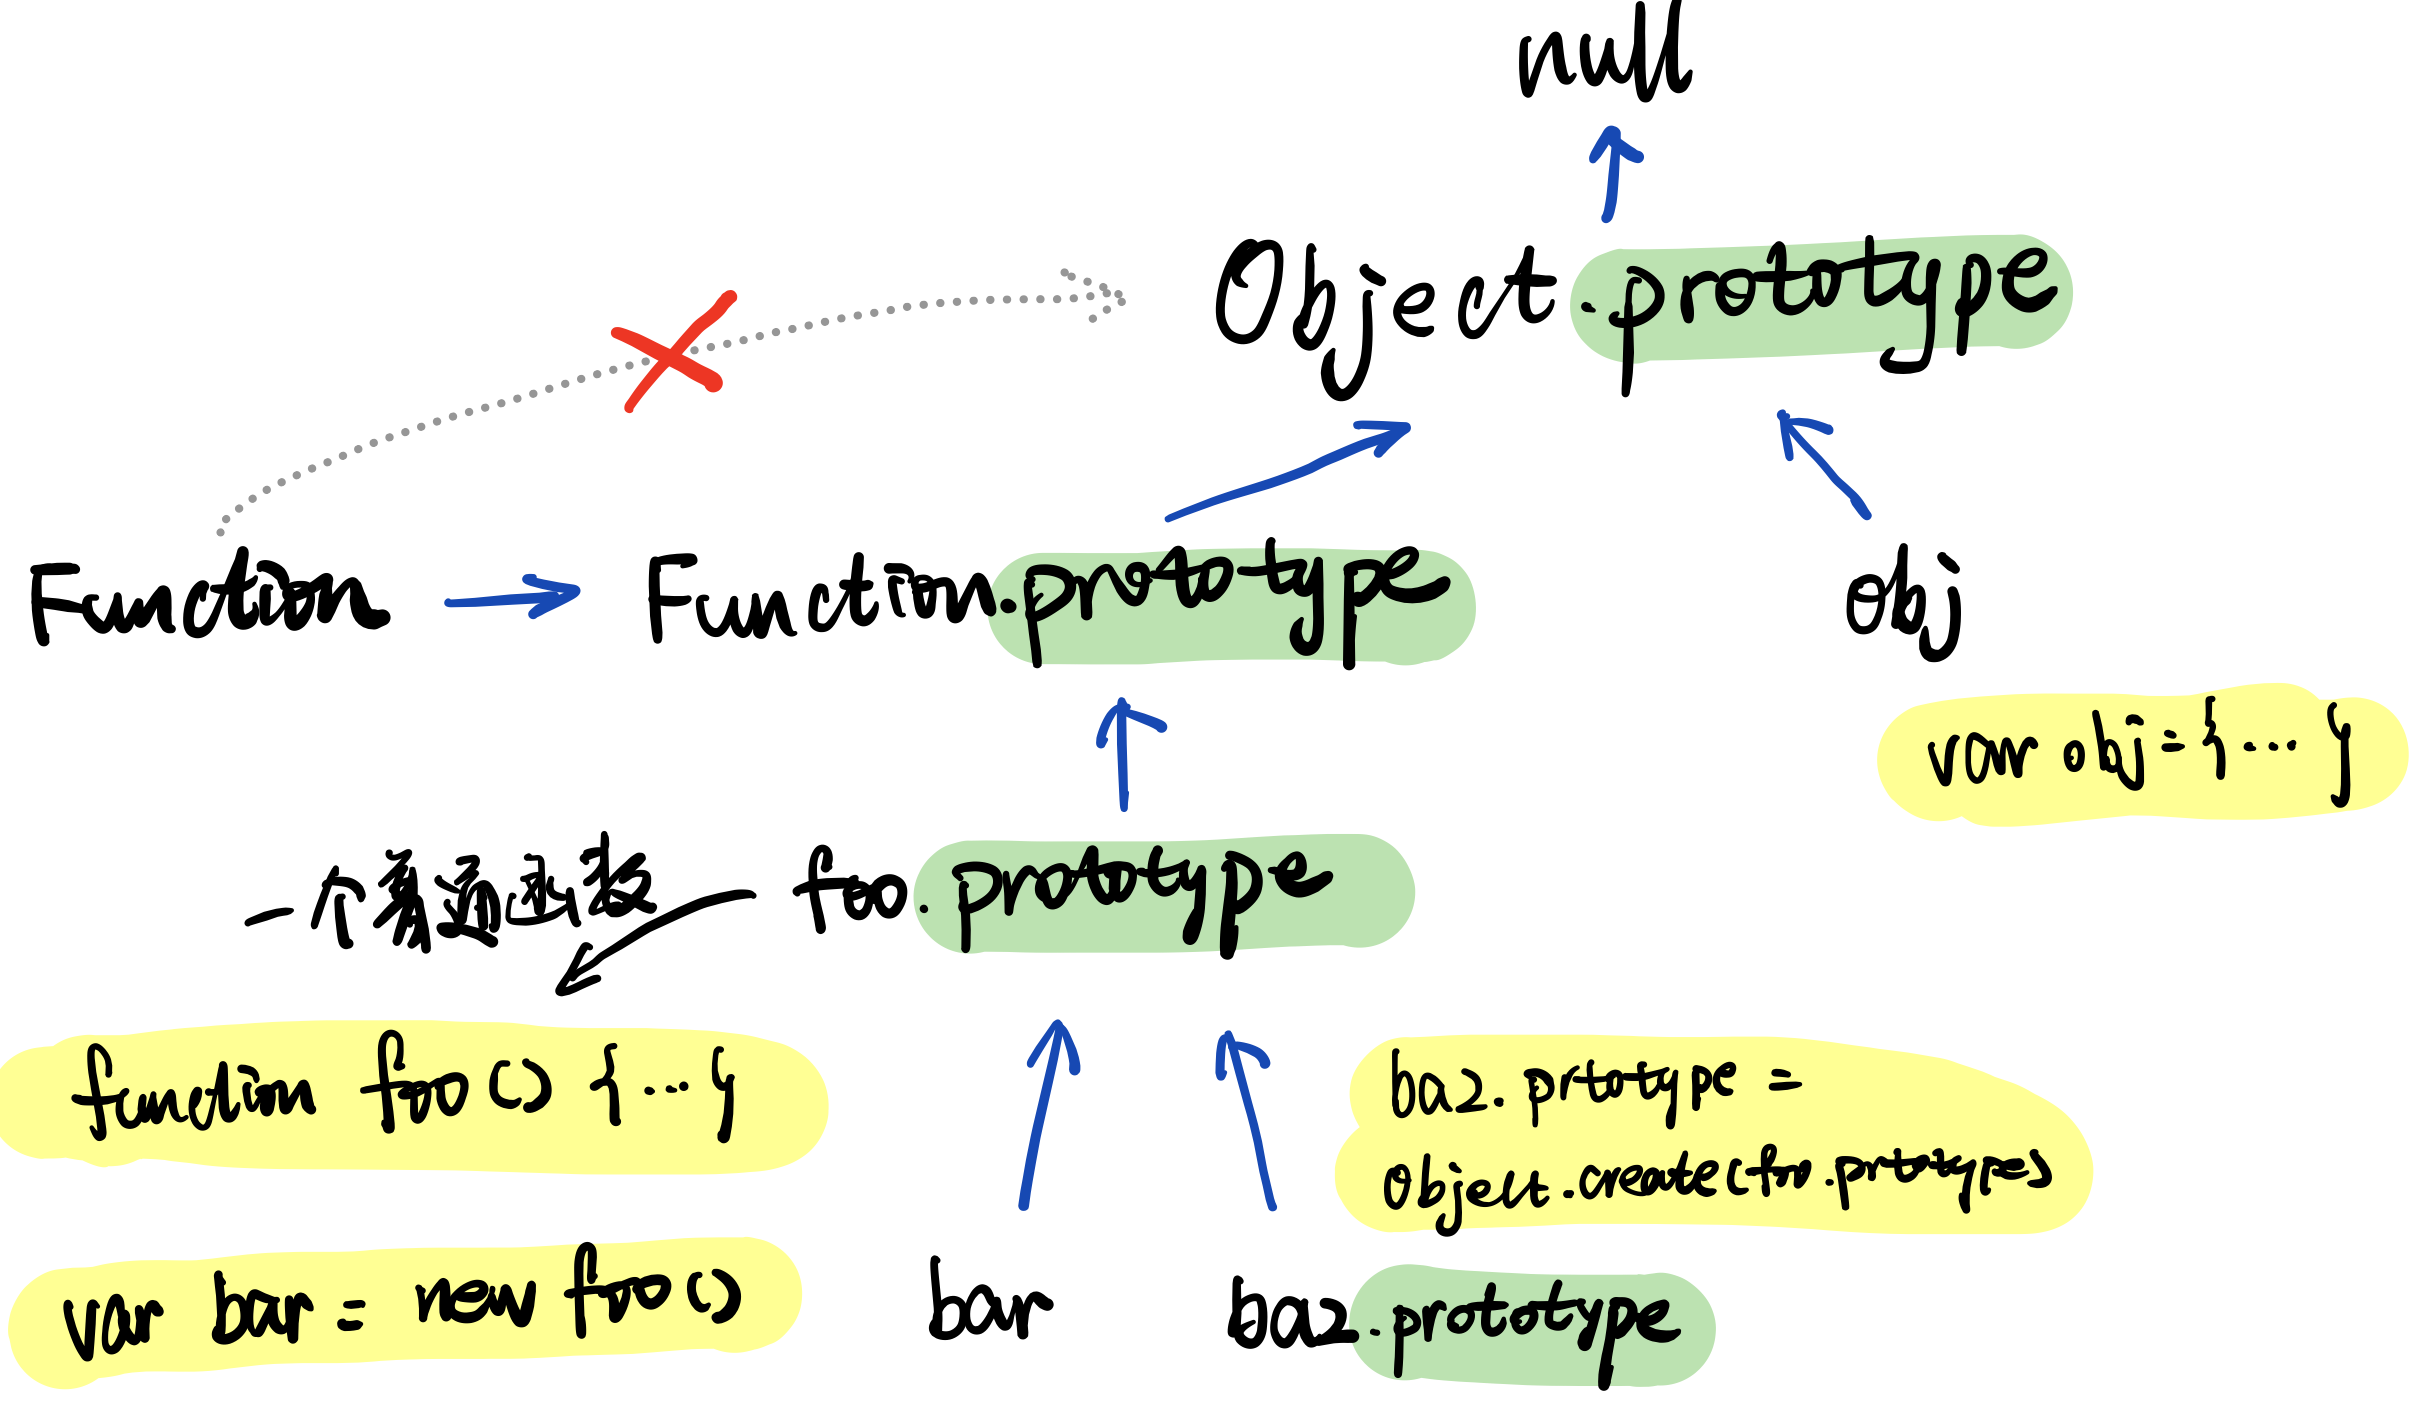 null
Object.prototype
Function
Function.prototype
obj
var obj={...}
一个普通函数
foo.prototype
function foo() {...}
baz.prtotype =
Object.create(foo.prototype)
var bar = new foo()
bar
baz.prototype